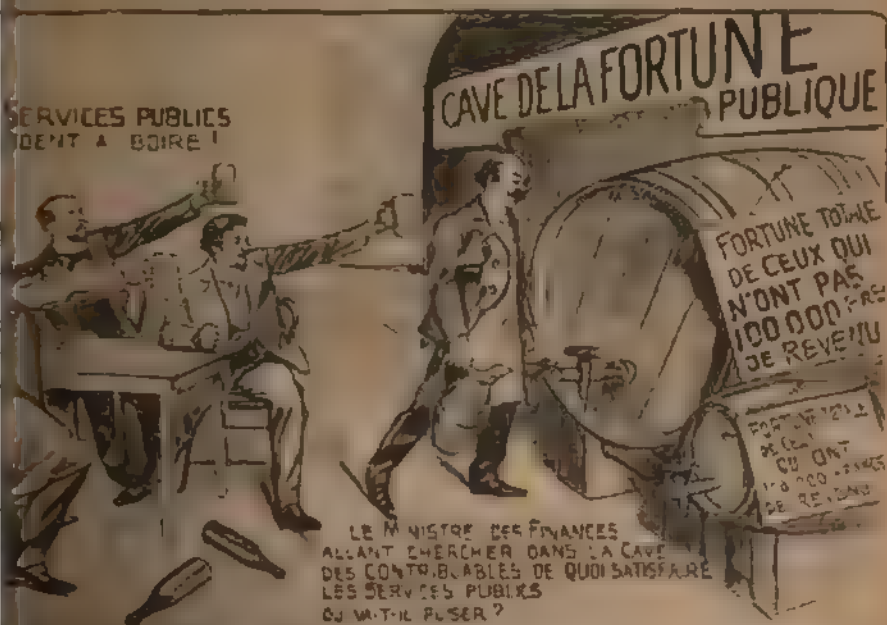 ERVICES PUBLICS
DENT A BOIRE !
CAVE DE LA FORTUNE
PUBLIQUE
FORTUNE TOTALE
DE CEUX QUI
N'ONT PAS
100 000 FRS
DE REVENU
FORTUNE TOTALE
DE CEUX
QUI ONT
100 000 FRANCS
DE REVENU
LE MINISTRE DES FINANCES
ALLANT CHERCHER DANS LA CAVE
DES CONTRIBUABLES DE QUOI SATISFAIRE
LES SERVICES PUBLICS
OU VA-T-IL PUISER ?